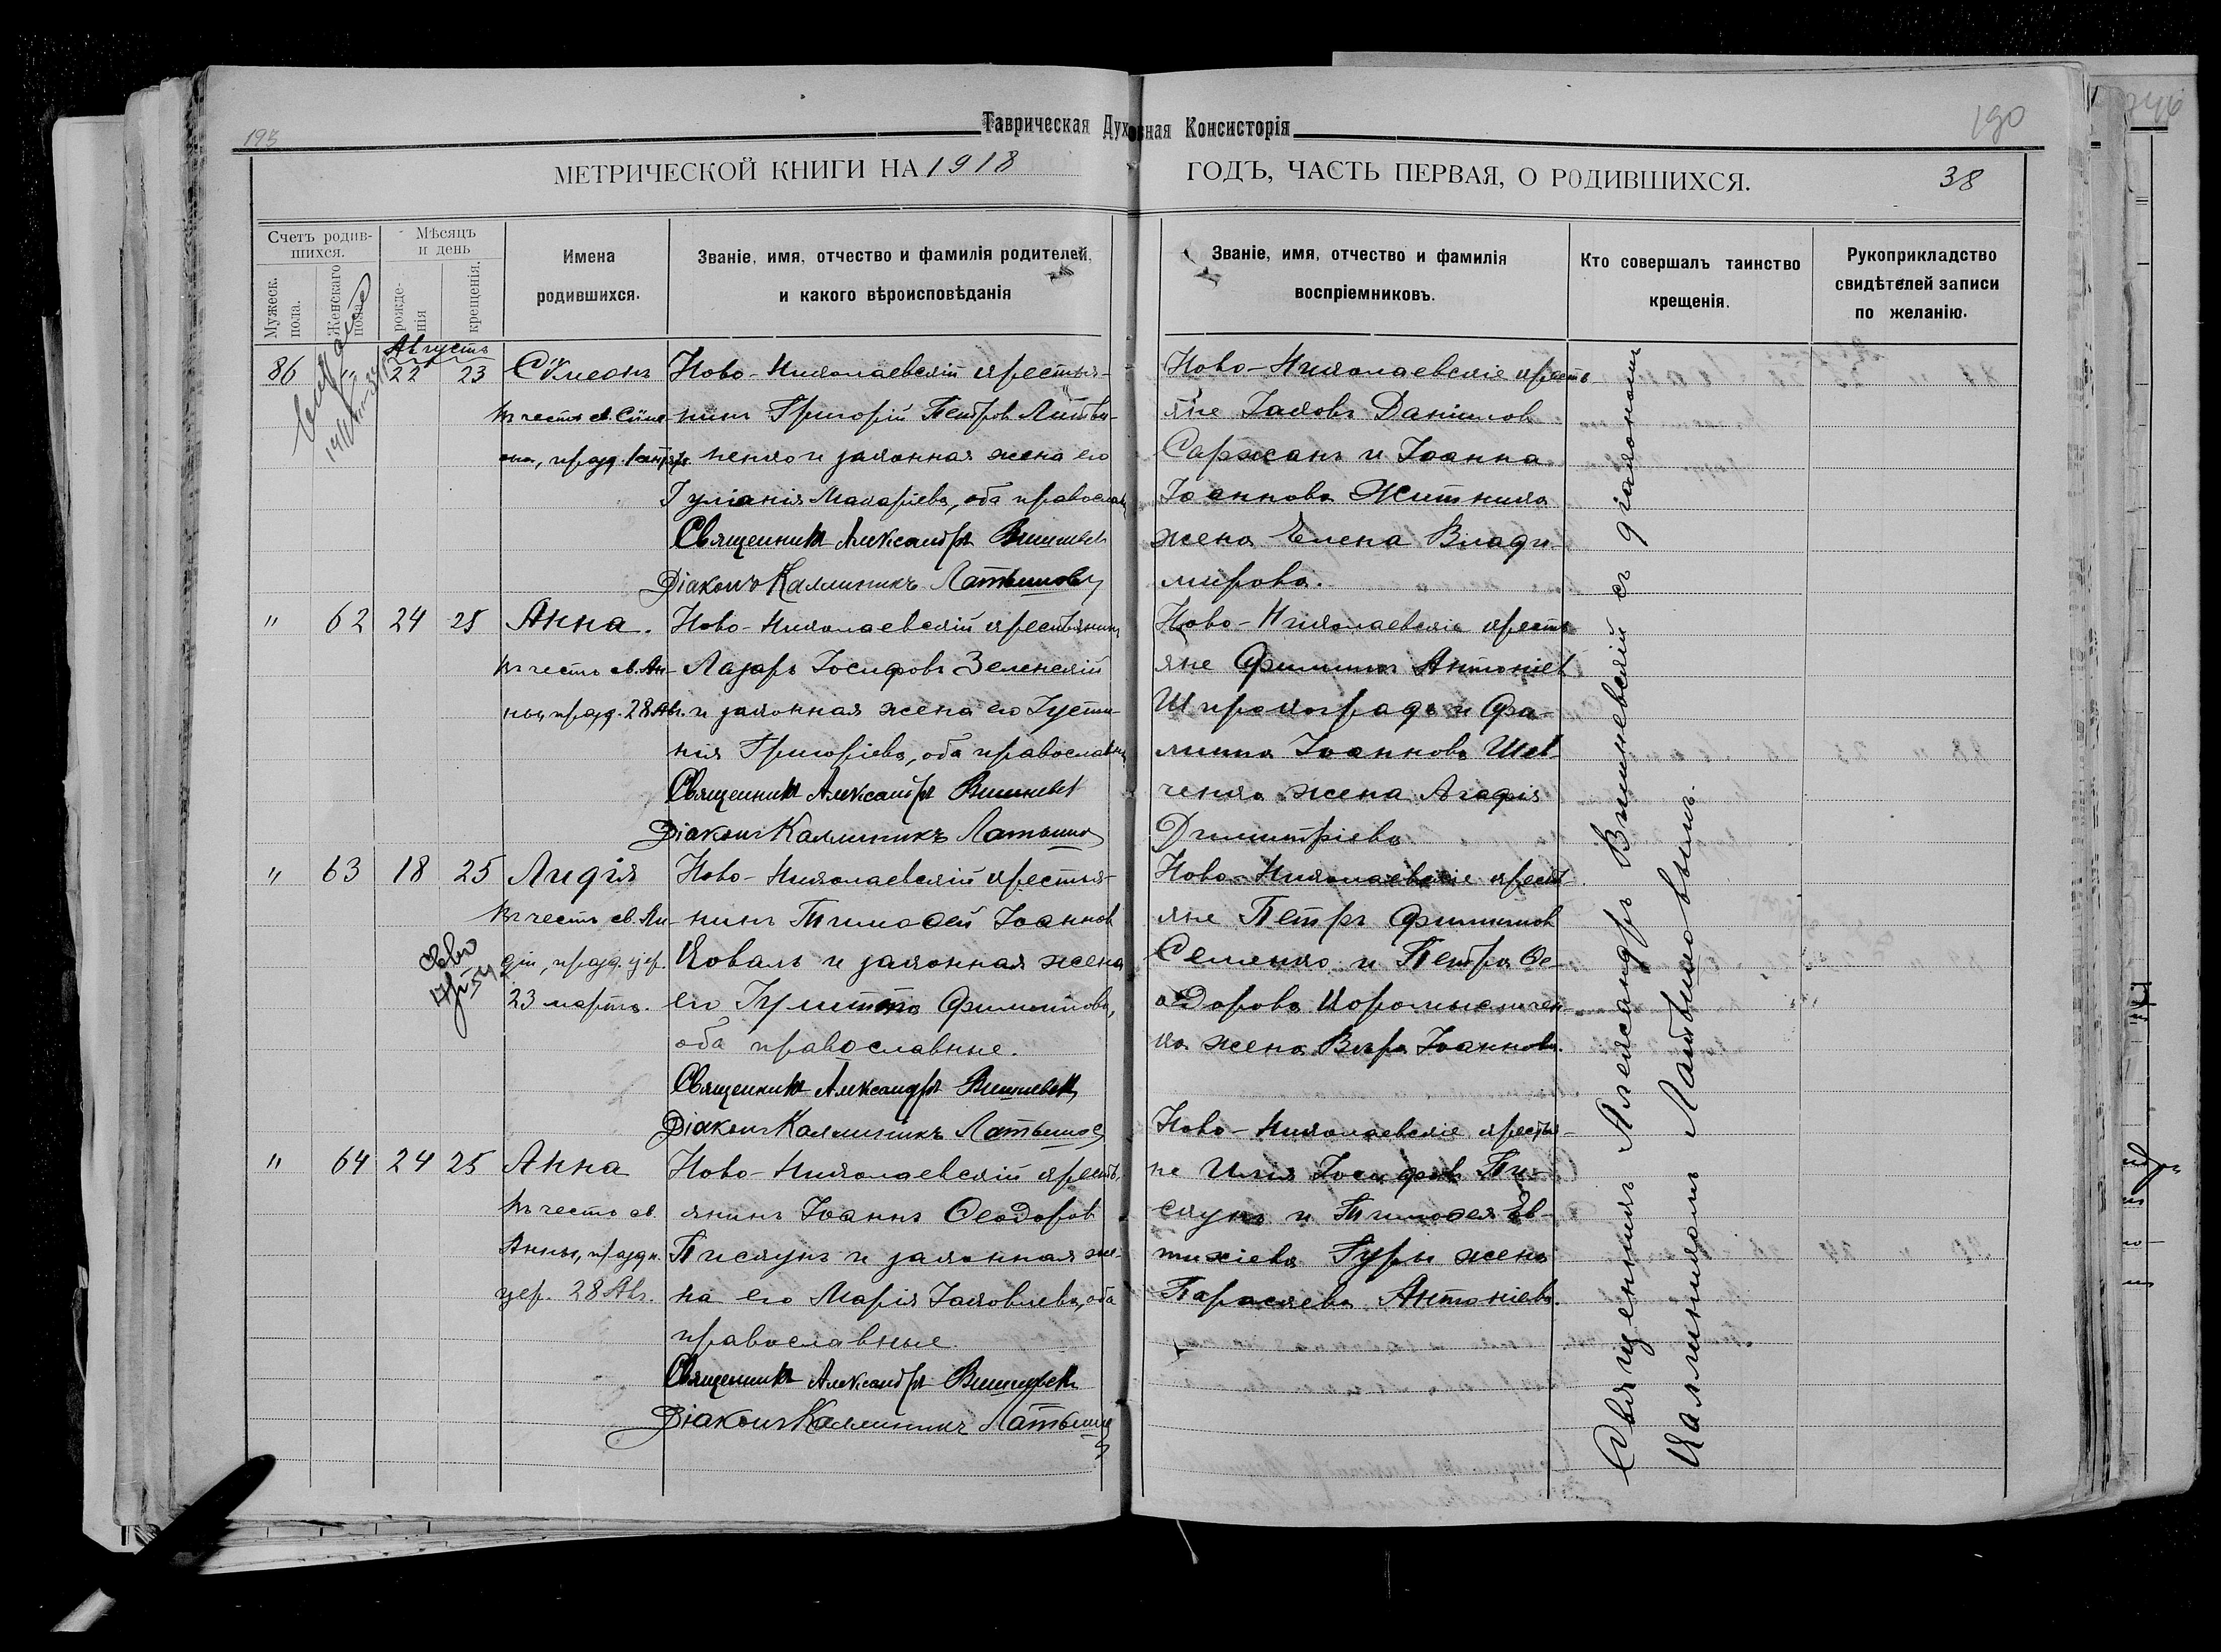 Таврическая Духовная Консисторія
195
190
МЕТРИЧЕСКОЙ КНИГИ НА 1918
ГОДЪ, ЧАСТЬ ПЕРВАЯ, О РОДИВШИХСЯ.
38
Счетъ родив-
шихся.
Мужеск.
пола.
Женскаго
пола.
Мѣсяцъ
и день
рожде-
нія
крещенія.
Имена
родившихся.
Званіе, имя, отчество и фамилія родителей,
и какого вѣроисповѣданія
Званіе, имя, отчество и фамилія
воспріемниковъ.
Кто совершалъ таинство
крещенія.
Рукоприкладство
свидѣтелей записи
по желанію.
Августъ
86 " 22 23 Сімеонъ
Въ честь св. Сіме-
она, празд. 1 сент.
Ново-Николаевскій крестья-
нинъ Григорій Петров Литви-
ненко и законная жена его
Іуліанія Макаріева, оба православн
Священникъ Александръ Вишневск
Діаконъ Каллиникъ Латышовъ
Ново-Николаевскіе кресть-
яне Іаковъ Даніилов
Саржанъ и Іоанна
Іоаннова Житника
жена Елена Влади-
мирова.
" 62 24 25 Анна.
Въ честь св. Ан-
ны, празд. 28 Ав.
Ново-Николаевскій крестьянинъ
Лазарь Іосифовъ Зеленскій
и законная жена его Іусти-
нія Григоріева, оба православн
Священникъ Александръ Вишневск
Діаконъ Каллиникъ Латышов
Ново-Николаевскіе кресть
яне Филиппъ Антоніев
Шкроградъ и Фи-
липпа Іоаннова Шев-
ченко жена Агафія
Димитріева
" 63 18 25 Лидія
Въ честь св. Ли-
діи, празд. цер.
23 марта.
Ново-Николаевскій крестья-
нинъ Тимофей Іоаннов
Коваль и законная жена
его Іулитта Филиппова,
оба православные.
Священникъ Александръ Вишневск
Діаконъ Каллиникъ Латышов
Ново-Николаевскіе кресть-
яне Петръ Филиппов
Семенко и Петра Ѳе-
одорова Коромысличен-
ка жена Вѣра Іоаннова.
" 64 24 25 Анна
Въ честь св.
Анны, праздн.
цер. 28 Ав.
Ново-Николаевскій кресть-
янинъ Іоаннъ Ѳеодоров
Пискунъ и законная же-
на его Марія Іаковлева, оба
православные
Священникъ Александръ Вишневск
Діаконъ Каллиникъ Латышов
Ново-Николаевскіе крестья-
не Илія Іосифов Пи-
скунъ и Тимофея Ев-
тихіева Гуры жена
Параскева Антоніева.
Священникъ Александръ Вишневскій съ діакономъ
Каллиникомъ Латышовымъ.